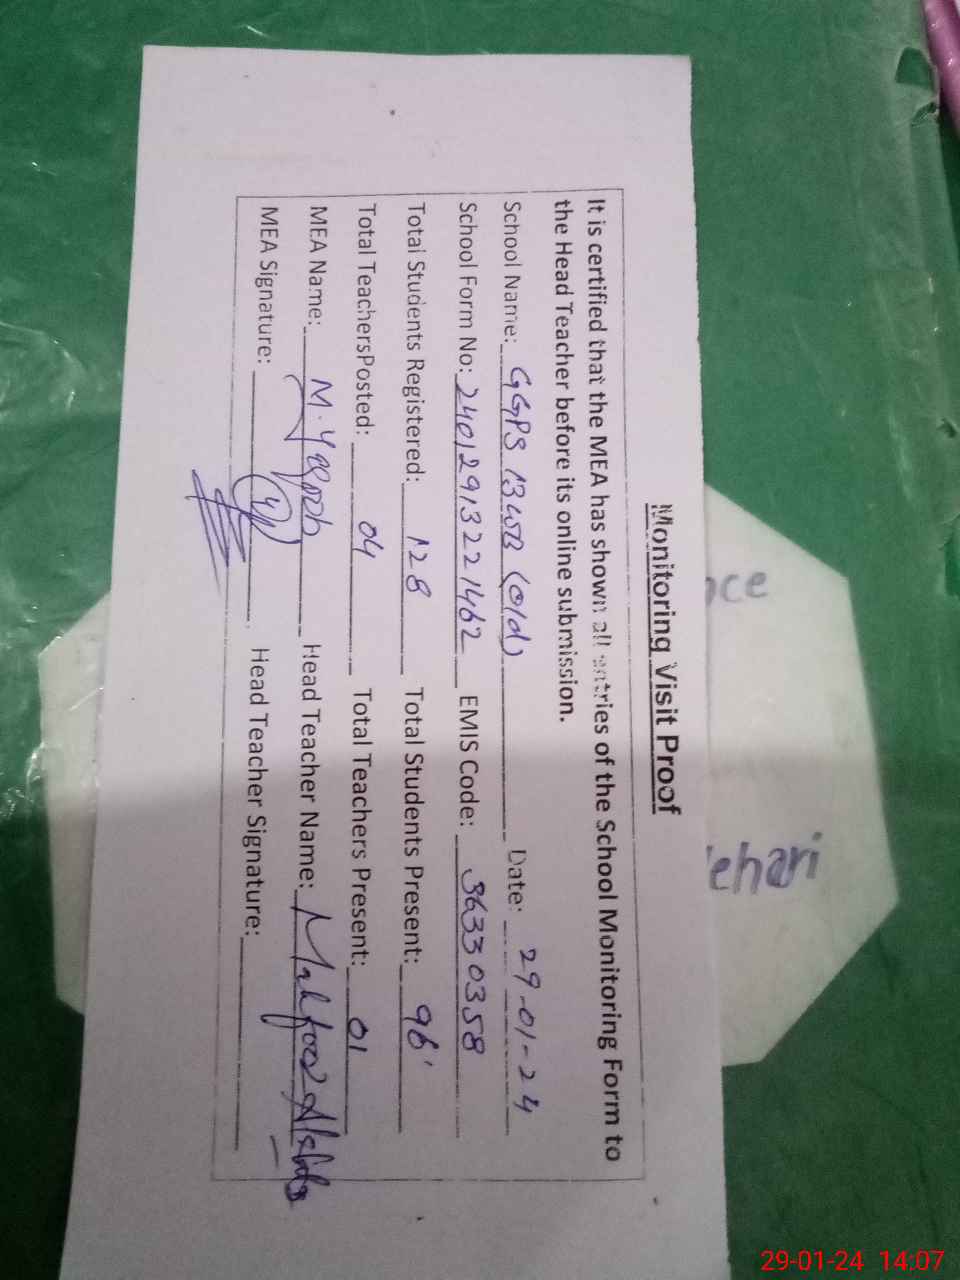 Monitoring Visit Proof
It is certified that the MEA has shown all entries of the School Monitoring Form to
the Head Teacher before its online submission.
School Name: GGPS 13WB (old) Date: 29-01-24
School Form No: 2401291322 1462 EMIS Code: 36330358
Total Students Registered: 128 Total Students Present: 96
Total TeachersPosted: 04 Total Teachers Present: 01
MEA Name: M. Yaqoob Head Teacher Name:
MEA Signature: Head Teacher Signature:
29-01-24 14:07